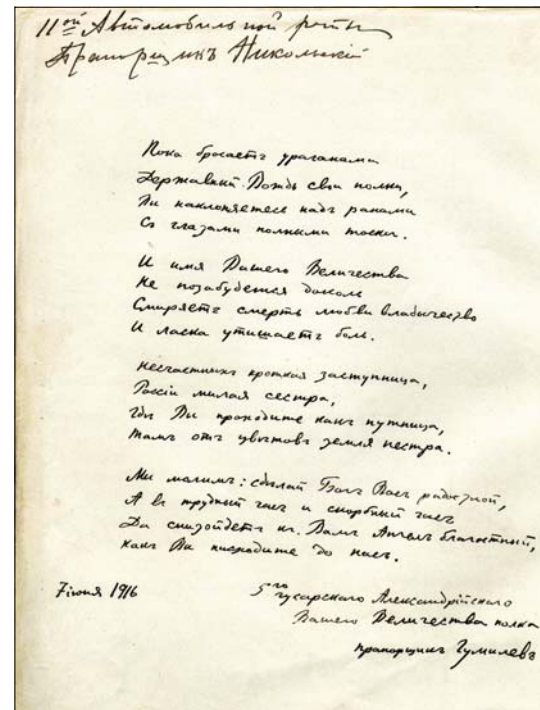 11ой Автомобильной роты
Прапорщикъ Никольскій
Пока бросаетъ ураганами
Державный Вождь свои полки,
Вы наклоняетесь надъ ранами
Съ глазами полными тоски.
И имя Вашего Величества
Не позабудется доколь
Смиряетъ смерть любви владычество
И ласка утишаетъ боль.
Несчастныхъ кроткая заступница,
Россіи милая сестра,
Гдѣ Вы проходите какъ путница,
Тамъ отъ цвѣтовъ земля пестра.
Мы молимъ: сдѣлай Богъ Васъ радостной,
А въ трудный часъ и скорбный часъ
Да снизойдетъ къ Вамъ Ангелъ благостный,
Какъ Вы нисходите до насъ.
7 іюня 1916
5го гусарскаго Александрійскаго
Вашего Величества полка
прапорщикъ Гумилевъ